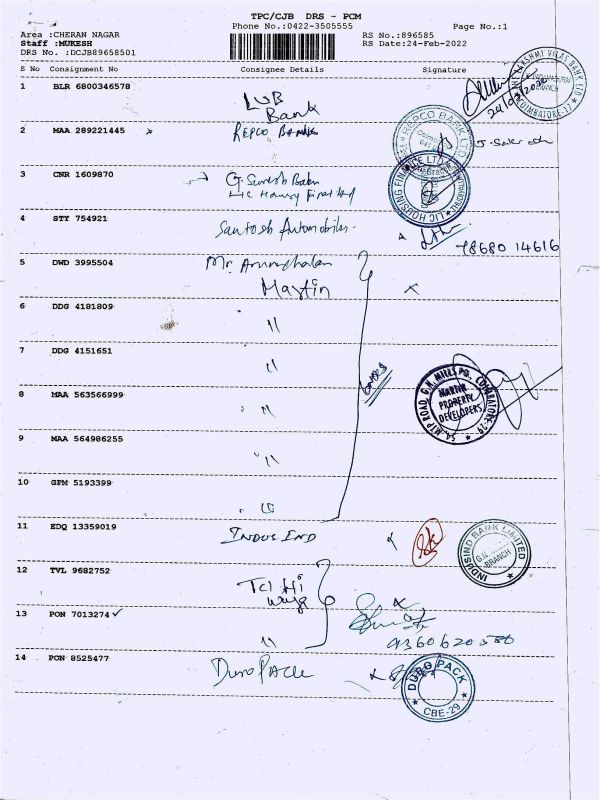 TPC/CJB DRS - PCM
Phone No.:0422-3505555 Page No.:1
Area :CHERAN NAGAR RS No.:896585
Staff :MUKESH RS Date:24-Feb-2022
DRS No. :DCJB89658501
S No Consignment No Consignee Details Signature
1 BLR 6800346578 LVB
Bank
2 MAA 289221445 REPCO BANK
3 CNR 1609870 G. Suresh Babu
LIC
4 STY 754921 Santosh Automobiles
78680 14616
5 DWD 3995504 Mr.
Martin
6 DDG 4181809 "
7 DDG 4151651 "
8 MAA 563566999 "
9 MAA 564986255 "
10 GPM 5193399 "
11 EDQ 13359019 INDUS IND
12 TVL 9682752 TCI Hi
ways
13 PON 7013274 "
9360620580
14 PON 8525477 Duro PACK
THE LAKSHMI VILAS BANK LTD
BRANCH
COIMBATORE-17
REPCO BANK LTD
LIC HOUSING FINANCE LTD
54, MTP ROAD G.N. MILLS PO., COIMBATORE-29
MARTIN
PROPERTY
DEVELOPERS
INDUSIND BANK LIMITED
G.N.
BRANCH
DURO PACK
CBE-29